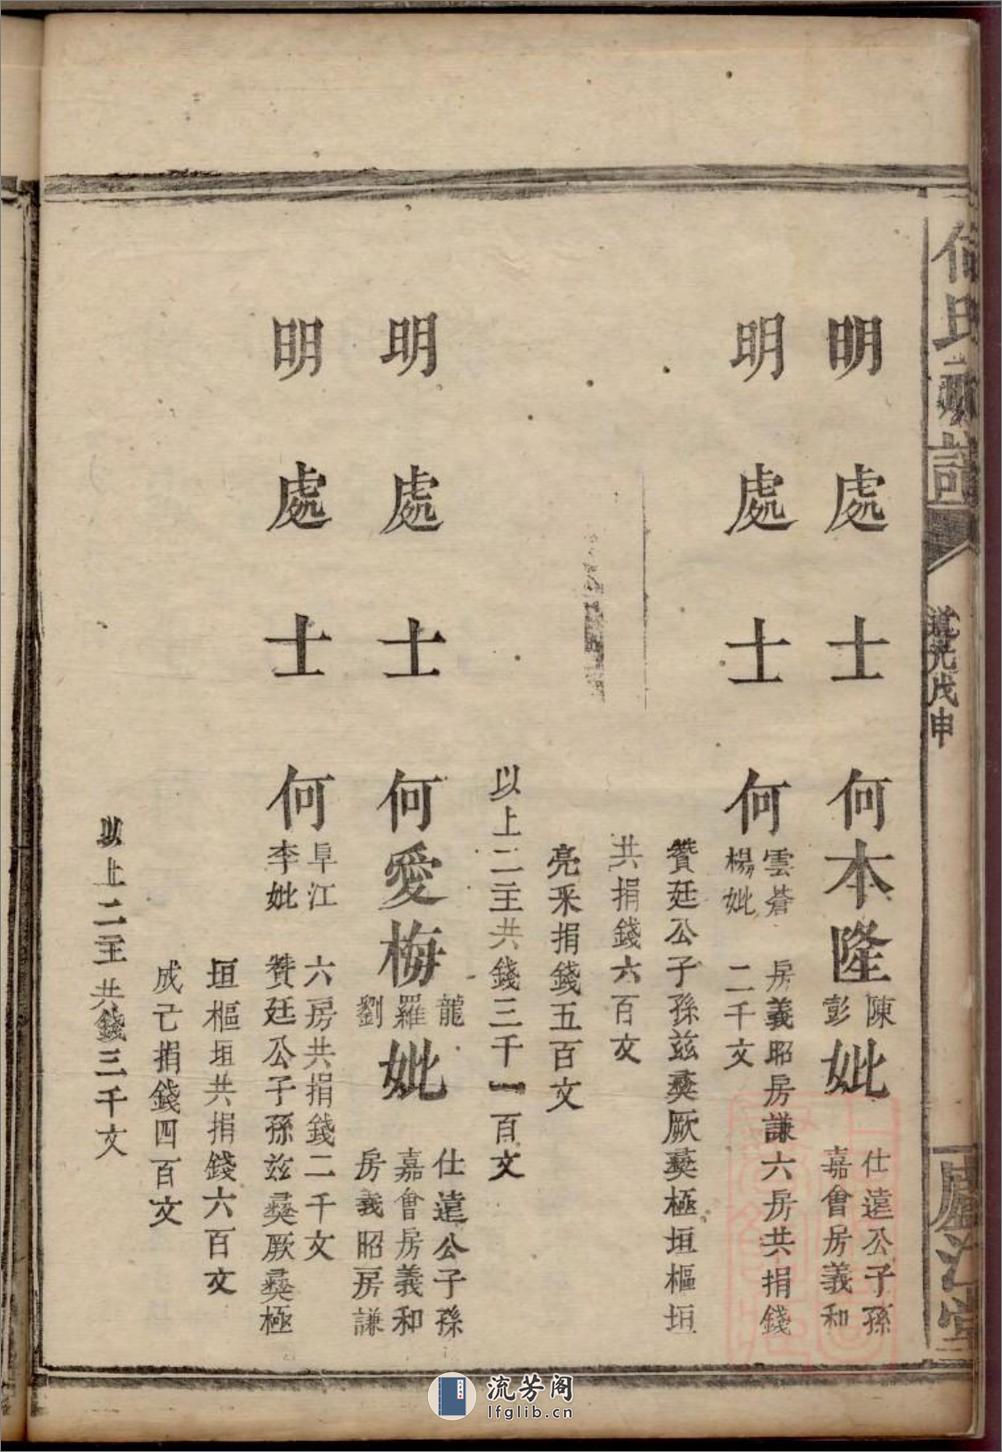 何氏族譜
道光戊申
廬江堂
明處士何本隆妣
陳
彭
仕遠公子孫
嘉會房義和
明處士何
雲蒼
楊妣
房義昭房謙六房共捐錢
二千文
贊廷公子孫茲彝厥彝極垣樞垣
共捐錢六百文
亮采捐錢五百文
以上二主共錢三千一百文
明處士何愛梅妣
龍
羅
劉
仕遠公子孫
嘉會房義和
房義昭房謙
明處士何
阜江
李妣
六房共捐錢二千文
贊廷公子孫茲彝厥彝極
垣樞垣共捐錢六百文
成己捐錢四百文
以上二主共錢三千文
流芳阁
lfglib.cn